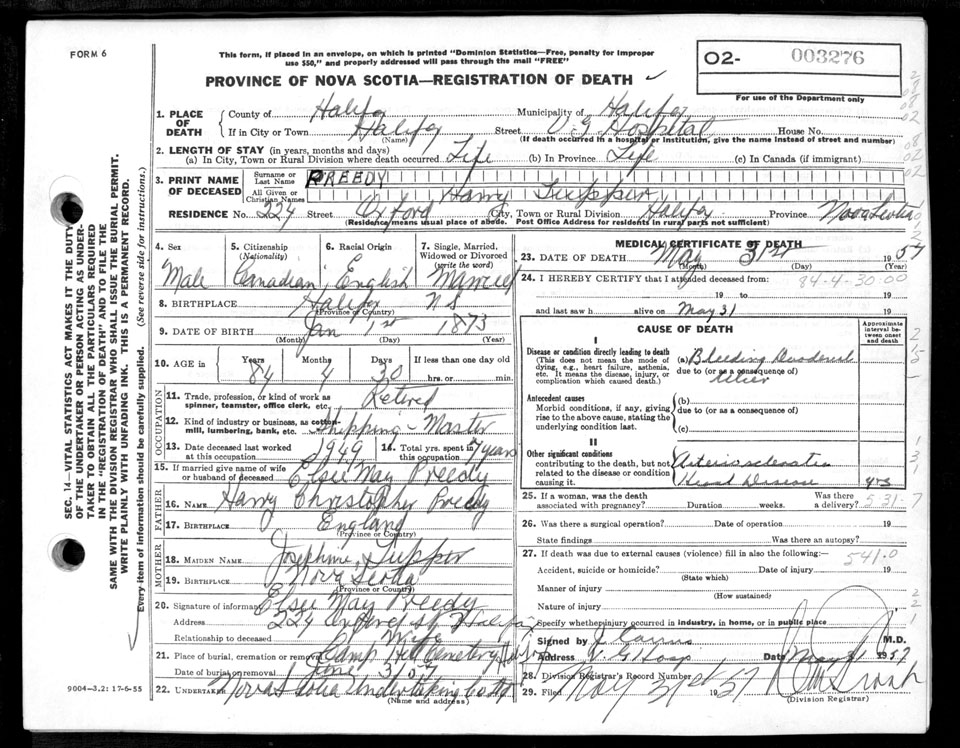 FORM 6
This form, if placed in an envelope, on which is printed "Dominion Statistics—Free, penalty for improper
use $50," and properly addressed will pass through the mail "FREE"
PROVINCE OF NOVA SCOTIA—REGISTRATION OF DEATH
02- 003276
For use of the Department only
SEC. 14—VITAL STATISTICS ACT MAKES IT THE DUTY
OF THE UNDERTAKER OR PERSON ACTING AS UNDER-
TAKER TO OBTAIN ALL THE PARTICULARS REQUIRED
IN THE "REGISTRATION OF DEATH" AND TO FILE THE
SAME WITH THE DIVISION REGISTRAR WHO SHALL ISSUE THE BURIAL PERMIT.
WRITE PLAINLY WITH UNFADING INK. THIS IS A PERMANENT RECORD.
Every item of information should be carefully supplied. (See reverse side for instructions.)
1. PLACE OF DEATH
County of Halifax Municipality of Halifax
If in City or Town Halifax Street V G Hospital House No.
(Name) (If death occurred in a hospital or institution, give the name instead of street and number)
2. LENGTH OF STAY (in years, months and days)
(a) In City, Town or Rural Division where death occurred Life (b) In Province Life (c) In Canada (if immigrant)
3. PRINT NAME OF DECEASED
Surname or Last Name PREEDY
All Given or Christian Names Harry Tupper
RESIDENCE No. 224 Street Oxford City, Town or Rural Division Halifax Province Nova Scotia
(Residence means usual place of abode. Post Office Address for residents in rural parts not sufficient)
4. Sex Male
5. Citizenship (Nationality) Canadian
6. Racial Origin English
7. Single, Married, Widowed or Divorced (write the word) Married
8. BIRTHPLACE Halifax N S
(Province or Country)
9. DATE OF BIRTH Jan 1st 1873
(Month) (Day) (Year)
10. AGE in Years 84 Months 4 Days 30 If less than one day old hrs. or min.
OCCUPATION
11. Trade, profession, or kind of work as spinner, teamster, office clerk, etc. Retired
12. Kind of industry or business, as cotton-mill, lumbering, bank, etc. Shipping-Master
13. Date deceased last worked at this occupation 1949
14. Total yrs. spent in this occupation 7 years
15. If married give name of wife or husband of deceased Elsie May Preedy
FATHER
16. NAME Harry Christopher Preedy
17. BIRTHPLACE England
(Province or Country)
MOTHER
18. MAIDEN NAME Josephine Tupper
19. BIRTHPLACE Nova Scotia
(Province or Country)
20. Signature of informant Elsie May Preedy
Address 224 Oxford St Halifax
Relationship to deceased Wife
21. Place of burial, cremation or removal Camp Hill Cemetery
Date of burial or removal June 3
22. UNDERTAKER Nova Scotia Undertaking Co
(Name and address)
9004—3.2: 17-6-55
MEDICAL CERTIFICATE OF DEATH
23. DATE OF DEATH May 31st 1957
(Month) (Day) (Year)
24. I HEREBY CERTIFY that I attended deceased from: 84-4-30-00
19 to 19
and last saw h alive on May 31 19
CAUSE OF DEATH
Approximate interval between onset and death
I
Disease or condition directly leading to death (a) Bleeding Duodenal
(This does not mean the mode of dying, e.g., heart failure, asthenia, etc. It means the disease, injury, or complication which caused death.)
due to (or as a consequence of) Ulcer
Antecedent causes
Morbid conditions, if any, giving rise to the above cause, stating the underlying condition last.
(b)
due to (or as a consequence of)
(c)
II
Other significant conditions
contributing to the death, but not related to the disease or condition causing it.
Arteriosclerotic
Heart Disease yrs
25. If a woman, was the death associated with pregnancy? Duration weeks. Was there a delivery?
5-31-7
26. Was there a surgical operation? Date of operation 19
State findings Was there an autopsy?
27. If death was due to external causes (violence) fill in also the following:—
541.0
Accident, suicide or homicide? Date of injury 19
(State which)
Manner of injury
(How sustained)
Nature of injury
Specify whether injury occurred in industry, in home, or in public place
Signed by M.D.
Address V. G. Hosp Date May 31 1957
28. Division Registrar's Record Number
29. Filed May 31st 1957
(Division Registrar)